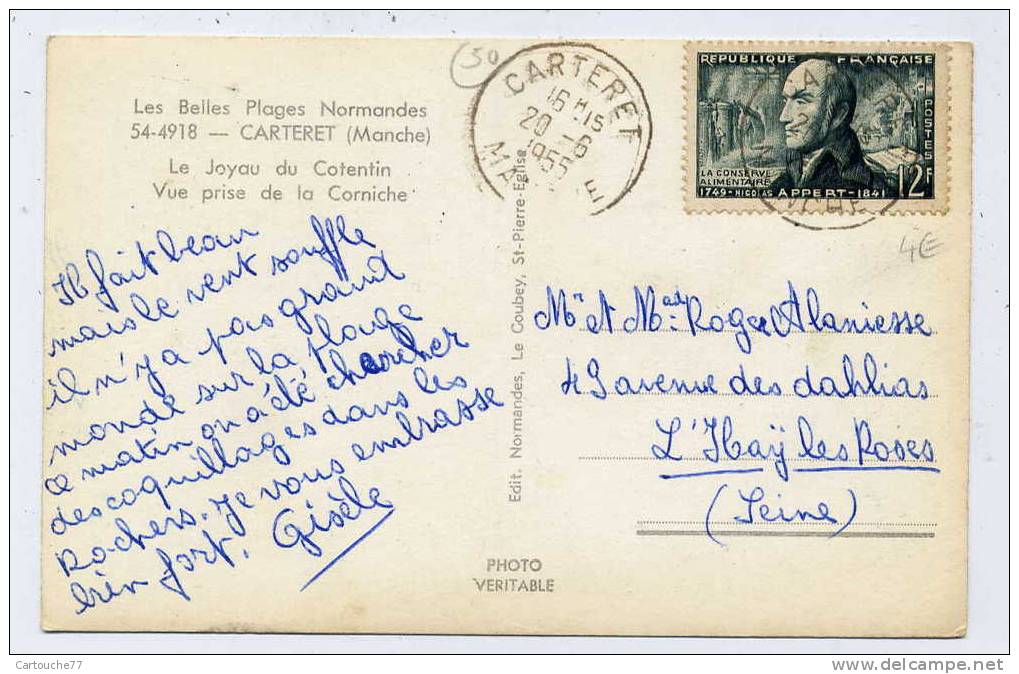 50
CARTERET
16 H15
20 -6
1955
MANCHE
REPUBLIQUE FRANÇAISE
POSTES
LA CONSERVE
ALIMENTAIRE
1749-NICOLAS APPERT-1841
12F
4€
Les Belles Plages Normandes
54-4918 — CARTERET (Manche)
Le Joyau du Cotentin
Vue prise de la Corniche
Il fait beau
mais le vent souffle
il n'y a pas grand
monde sur la plage
ce matin on a été chercher
des coquillages dans les
Rochers. Je vous embrasse
bien fort. Gisèle
Edit. Normandes, Le Coubey, St-Pierre-Eglise
Mr et Mad Roger Alaniesse
49 avenue des dahlias
L'Haÿ les Roses
(Seine)
PHOTO
VERITABLE
Cartouche77
www.delcampe.net